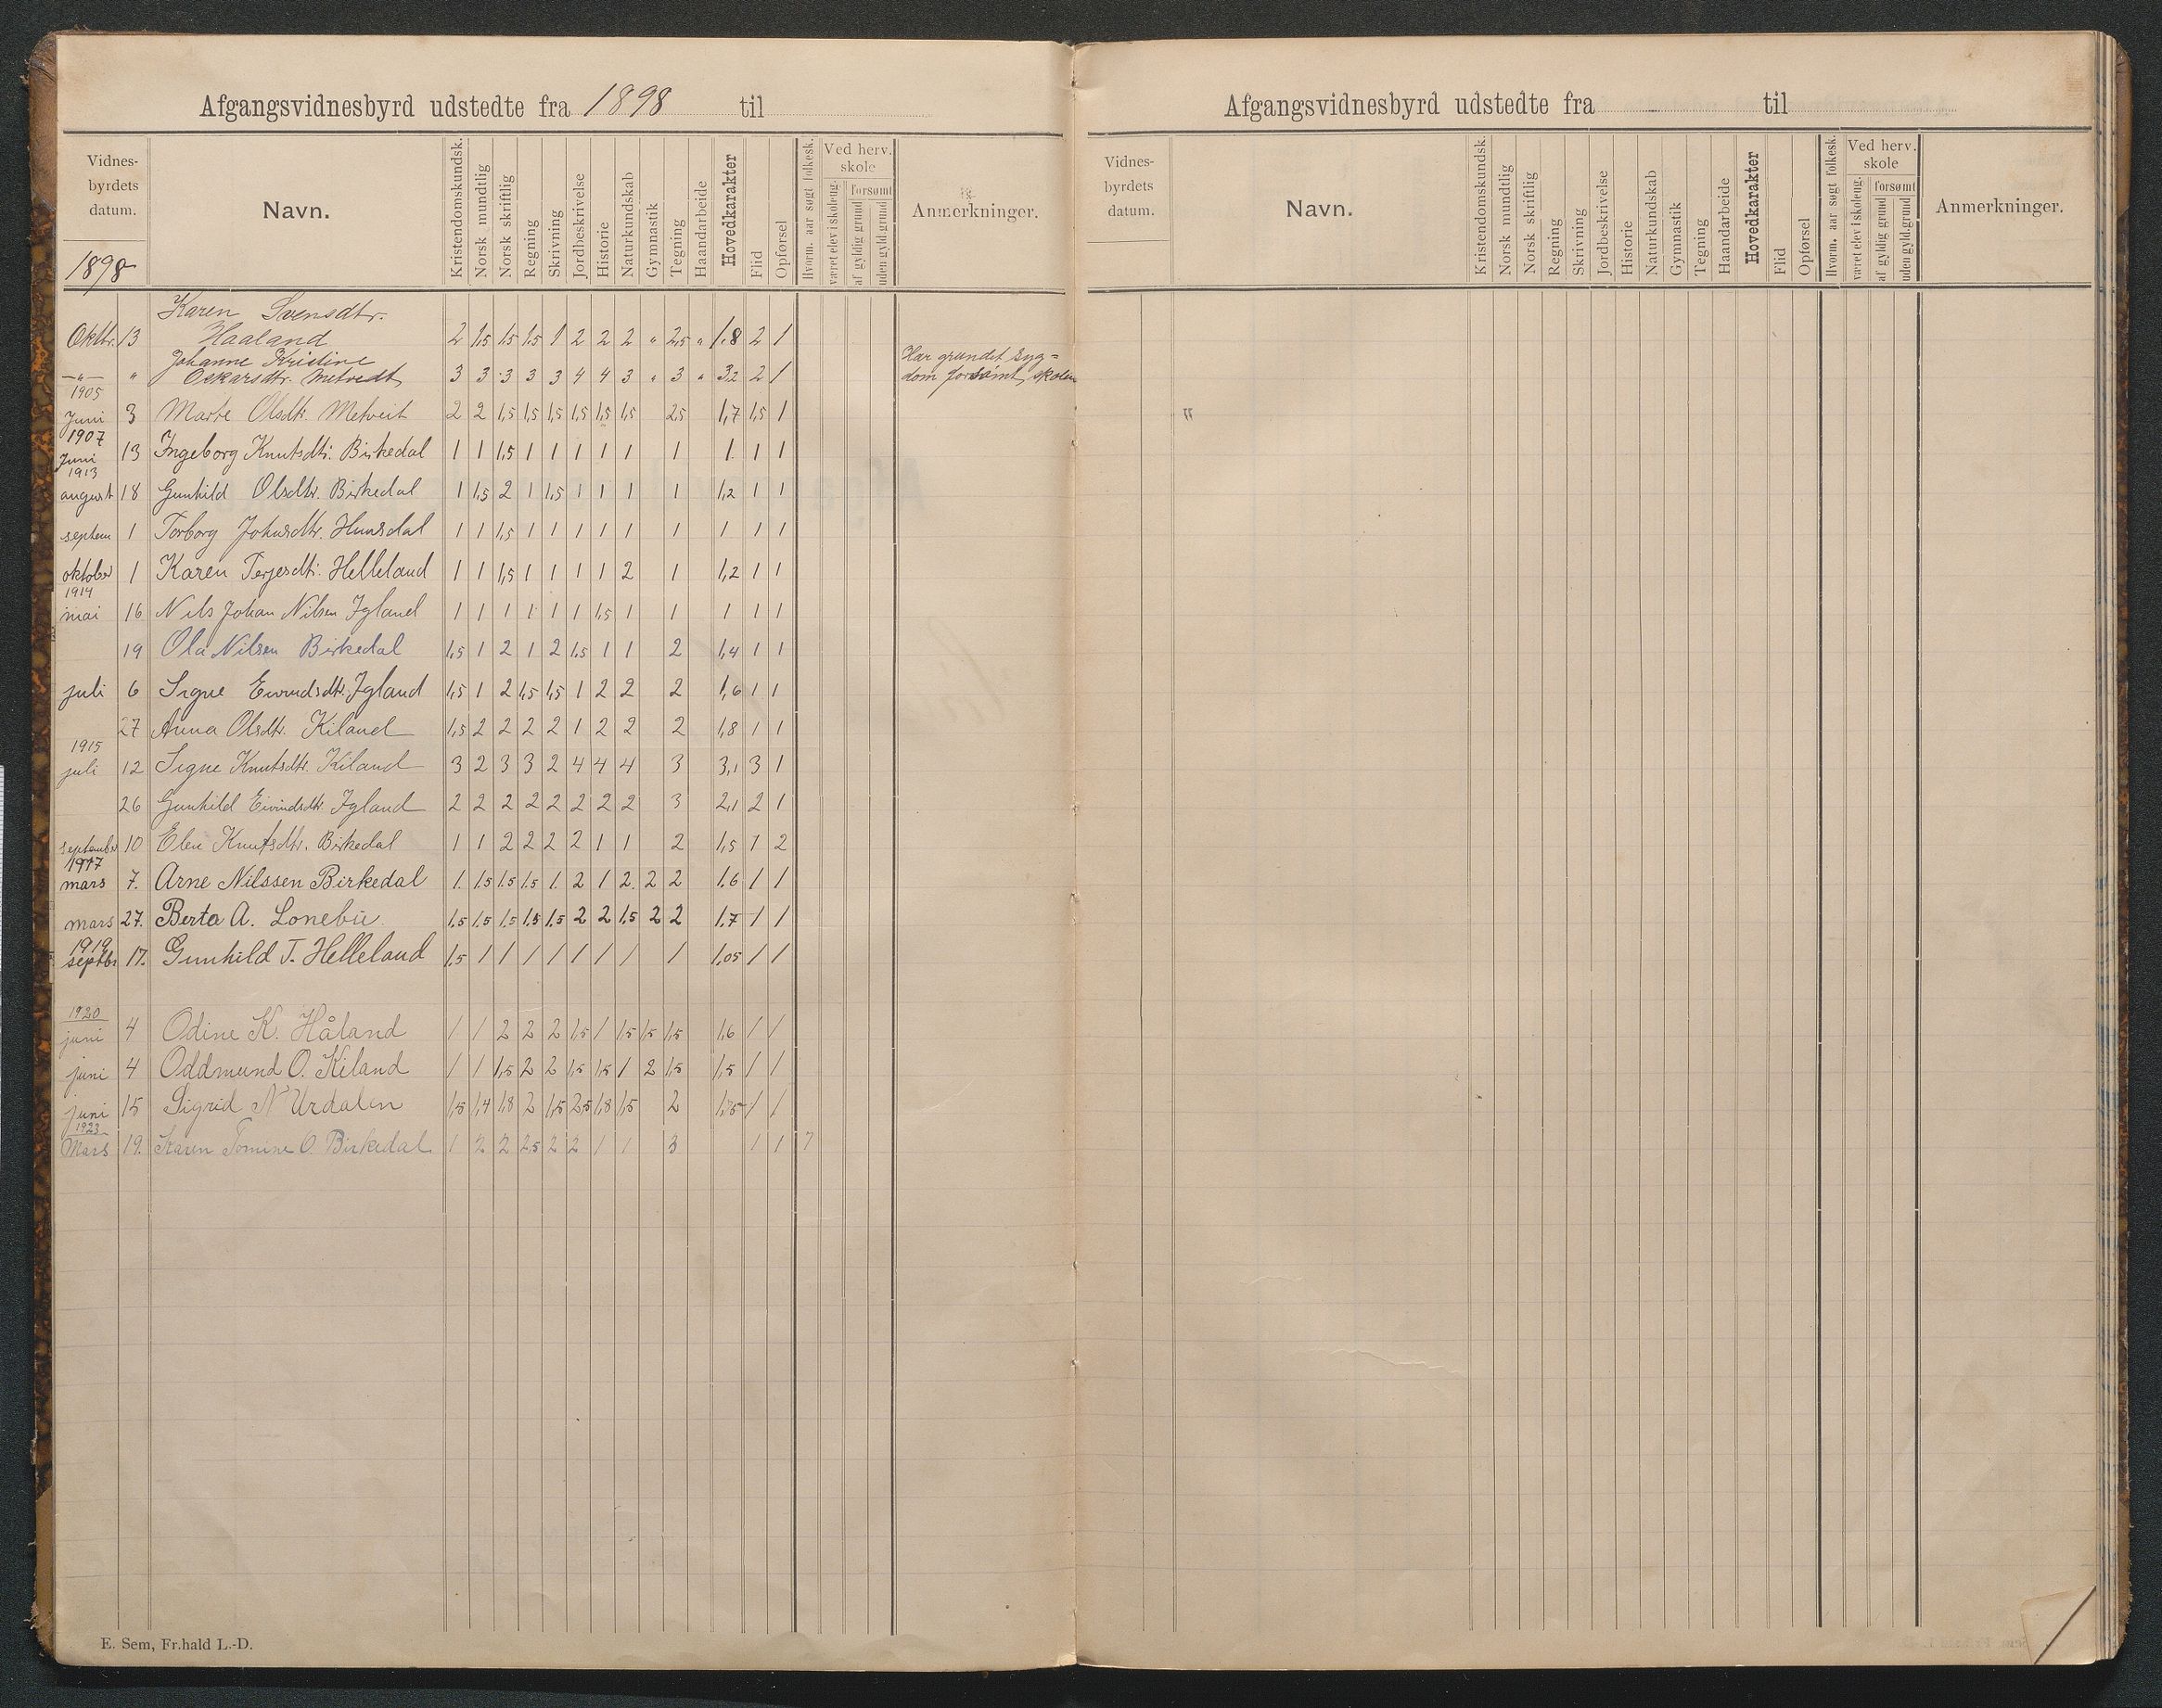 Afgangsvidnesbyrd udstedte fra 1898 til
Vidnes-
byrdets
datum.
1898
Navn.
Kristendomskundsk.
Norsk mundtlig
Norsk skriftlig
Regning
Skrivning
Jordbeskrivelse
Historie
Naturkundskab
Gymnastik
Tegning
Haandarbeide
Hovedkarakter
Flid
Opførsel
Hvorm. aar søgt folkesk.
Ved herv. skole
været elev i skoleug.
forsømt
af gyldig grund
uden gyld. grund
Anmerkninger.
Karen Svensdtr.
Oktbr. 13 Haaland 2 1,5 1,5 1,5 1 2 2 2 " 2,5 " 1,8 2 1
Johanne Kristine
—"— " Oskarsdtr. Metvedt 3 3 3 3 3 4 4 3 " 3 " 3,2 2 1
Har grundet syg=
dom forsømt skolen
1905
Juni 3 Marte Olsdtr. Metveit 2 2 1,5 1,5 1,5 1,5 1,5 1,5 2,5 1,7 1,5 1
1907
Juni 13 Ingeborg Knutsdtr. Birkedal 1 1 1,5 1 1 1 1 1 1 1 1 1
1913
august 18 Gunhild Olsdtr. Birkedal 1 1,5 2 1 1,5 1 1 1 1 1,2 1 1
septem 1 Torborg Johnsdtr. Hunsdal 1 1 1,5 1 1 1 1 1 1 1 1 1
oktober 1 Karen Terjesdtr. Helleland 1 1 1,5 1 1 1 1 2 1 1,2 1 1
1914
mai 16 Nils Johan Nilsen Igland 1 1 1 1 1 1 1,5 1 1 1 1 1
19 Ola Nilsen Birkedal 1,5 1 2 1 2 1,5 1 1 2 1,4 1 1
juli 6 Signe Eivindsdtr. Igland 1,5 1 2 1,5 1,5 1 2 2 2 1,6 1 1
27 Anna Olsdtr. Kiland 1,5 2 2 2 2 1 2 2 2 1,8 1 1
1915
juli 12 Signe Knutsdtr. Kiland 3 2 3 3 2 4 4 4 3 3,1 3 1
26 Gunhild Eivindsdtr Igland 2 2 2 2 2 2 2 2 3 2,1 2 1
september 10 Elen Knutsdtr. Birkedal 1 1 2 2 2 2 1 1 2 1,5 1 2
1917
mars 7. Arne Nilssen Birkedal 1. 1.5 1.5 1.5 1. 2 1 2. 2 2 1.6 1 1
mars 27. Berta A. Lonebu. 1.5 1.5 1.5 1.5 1.5 2 2 1.5 2 2 1.7 1 1
1919
septbr 17. Gunhild T. Helleland 1,5 1 1 1 1 1 1 1 1 1,05 1 1
1920
juni 4 Odine K. Håland 1 1 2 2 2 1,5 1 1,5 1,5 1,5 1,6 1 1
juni 4 Oddmund O. Kiland 1 1 1,5 2 2 1,5 1,5 1 2 1,5 1,5 1 1
juni 15 Sigrid N Urdalen 1,5 1,4 1,8 2 1,5 2,5 1,8 1,5 2 1,75 1 1
1923
Mars 19. Karen Tomine O. Birkedal. 1 2 2 2.5 2 2 1 1 3 1 1 7
E. Sem, Fr.hald L.-D.
Afgangsvidnesbyrd udstedte fra til
Vidnes-
byrdets
datum.
Navn.
Kristendomskundsk.
Norsk mundtlig
Norsk skriftlig
Regning
Skrivning
Jordbeskrivelse
Historie
Naturkundskab
Gymnastik
Tegning
Haandarbeide
Hovedkarakter
Flid
Opførsel
Hvorm. aar søgt folkesk.
Ved herv. skole
været elev i skoleug.
forsømt
af gyldig grund
uden gyld. grund
Anmerkninger.